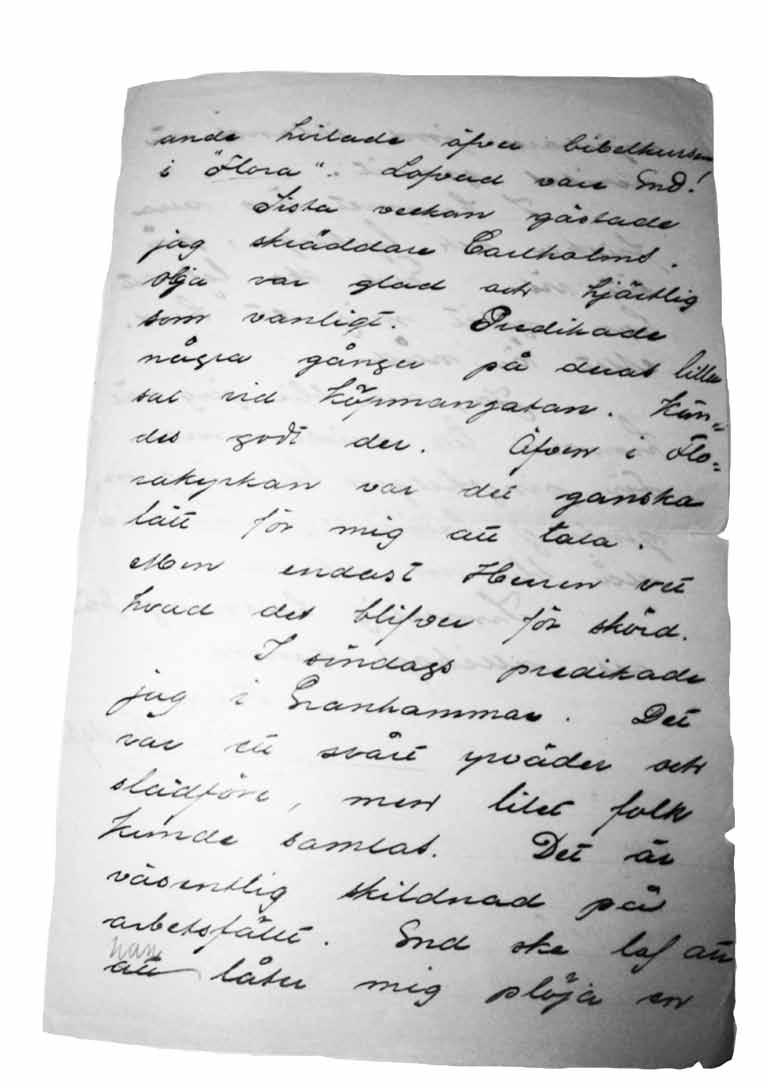 ande hvilade öfver bibelkursen
i "Flora". Lofvad vare Gud!
Sista veckan gästade
jag skräddare Carlholms.
Olja var glad och hjärtlig
som vanligt. Predikade
några gånger på deras lilla
sal vid Köpmangatan. Kän-
des godt der. Äfven i Flo-
rakyrkan var det ganska
lätt för mig att tala.
Men endast Herren vet
hvad det blifver för skörd.
I söndags predikade
jag i Granhammar. Det
var ett svårt yrväder och
slädföre, men litet folk
kunde samlas. Det är
väsentlig skildnad på
arbetsfället. Gud ske lof att
han
att låter mig plöja en